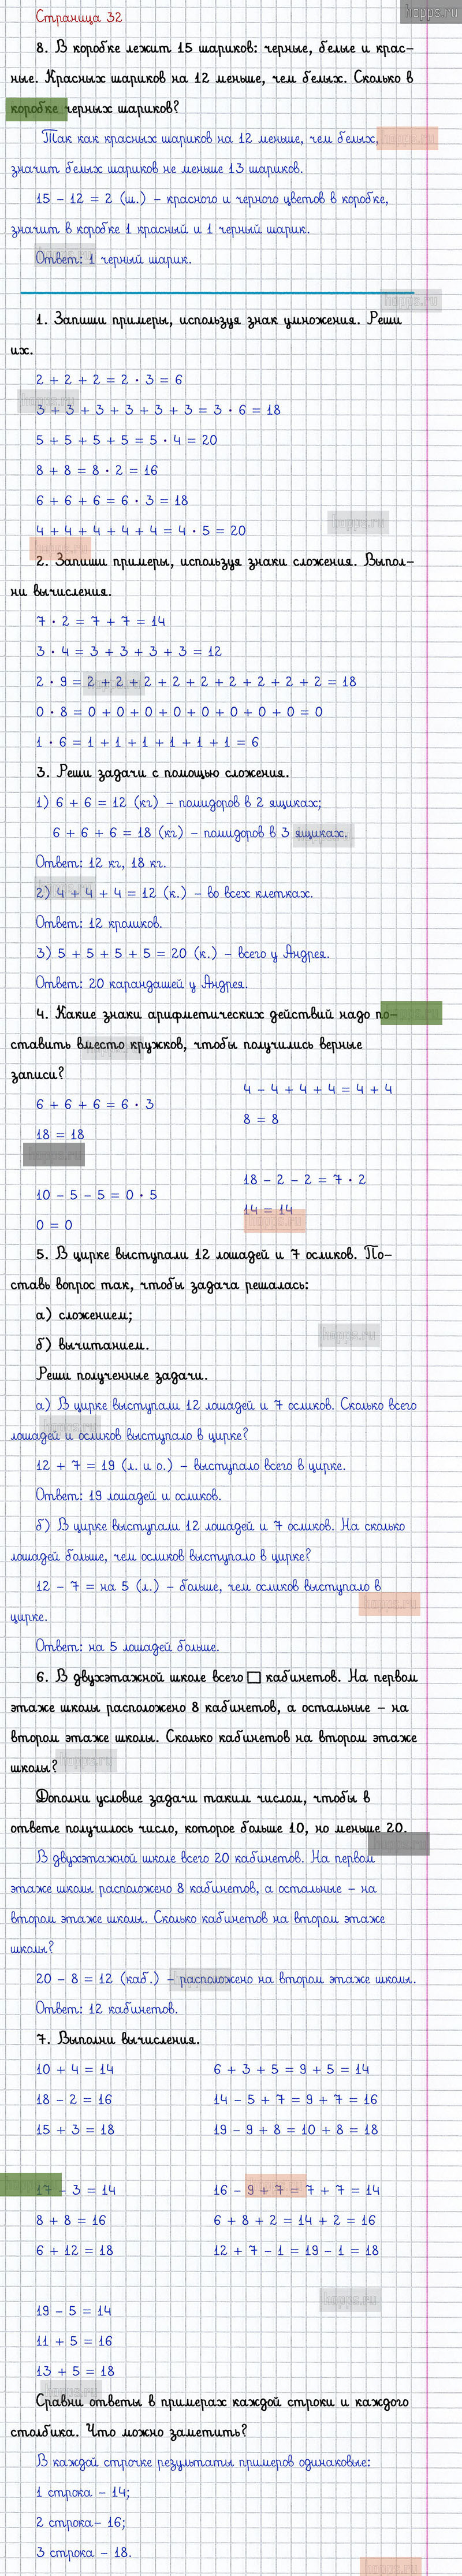 Страница 32
8. В коробке лежит 15 шариков: черные, белые и крас-
ные. Красных шариков на 12 меньше, чем белых. Сколько в
коробке черных шариков?
Так как красных шариков на 12 меньше, чем белых,
значит белых шариков не меньше 13 шариков.
15 - 12 = 2 (ш.) - красного и черного цветов в коробке,
значит в коробке 1 красный и 1 черный шарик.
Ответ: 1 черный шарик.
1. Запиши примеры, используя знак умножения. Реши
их.
2 + 2 + 2 = 2 · 3 = 6
3 + 3 + 3 + 3 + 3 + 3 = 3 · 6 = 18
5 + 5 + 5 + 5 = 5 · 4 = 20
8 + 8 = 8 · 2 = 16
6 + 6 + 6 = 6 · 3 = 18
4 + 4 + 4 + 4 + 4 = 4 · 5 = 20
2. Запиши примеры, используя знаки сложения. Выпол-
ни вычисления.
7 · 2 = 7 + 7 = 14
3 · 4 = 3 + 3 + 3 + 3 = 12
2 · 9 = 2 + 2 + 2 + 2 + 2 + 2 + 2 + 2 + 2 = 18
0 · 8 = 0 + 0 + 0 + 0 + 0 + 0 + 0 + 0 = 0
1 · 6 = 1 + 1 + 1 + 1 + 1 + 1 = 6
3. Реши задачи с помощью сложения.
1) 6 + 6 = 12 (кг) - помидоров в 2 ящиках;
6 + 6 + 6 = 18 (кг) - помидоров в 3 ящиках.
Ответ: 12 кг, 18 кг.
2) 4 + 4 + 4 = 12 (к.) - во всех клетках.
Ответ: 12 кроликов.
3) 5 + 5 + 5 + 5 = 20 (к.) - всего у Андрея.
Ответ: 20 карандашей у Андрея.
4. Какие знаки арифметических действий надо по-
ставить вместо кружков, чтобы получились верные
записи?
6 + 6 + 6 = 6 · 3
18 = 18
10 - 5 - 5 = 0 · 5
0 = 0
4 - 4 + 4 + 4 = 4 + 4
8 = 8
18 - 2 - 2 = 7 · 2
14 = 14
5. В цирке выступали 12 лошадей и 7 осликов. По-
ставь вопрос так, чтобы задача решалась:
а) сложением;
б) вычитанием.
Реши полученные задачи.
а) В цирке выступали 12 лошадей и 7 осликов. Сколько всего
лошадей и осликов выступало в цирке?
12 + 7 = 19 (л. и о.) - выступало всего в цирке.
Ответ: 19 лошадей и осликов.
б) В цирке выступали 12 лошадей и 7 осликов. На сколько
лошадей больше, чем осликов выступало в цирке?
12 - 7 = на 5 (л.) - больше, чем осликов выступало в
цирке.
Ответ: на 5 лошадей больше.
6. В двухэтажной школе всего □ кабинетов. На первом
этаже школы расположено 8 кабинетов, а остальные - на
втором этаже школы. Сколько кабинетов на втором этаже
школы?
Дополни условие задачи таким числом, чтобы в
ответе получилось число, которое больше 10, но меньше 20.
В двухэтажной школе всего 20 кабинетов. На первом
этаже школы расположено 8 кабинетов, а остальные - на
втором этаже школы. Сколько кабинетов на втором этаже
школы?
20 - 8 = 12 (каб.) - расположено на втором этаже школы.
Ответ: 12 кабинетов.
7. Выполни вычисления.
10 + 4 = 14
18 - 2 = 16
15 + 3 = 18
6 + 3 + 5 = 9 + 5 = 14
14 - 5 + 7 = 9 + 7 = 16
19 - 9 + 8 = 10 + 8 = 18
17 - 3 = 14
8 + 8 = 16
6 + 12 = 18
16 - 9 + 7 = 7 + 7 = 14
6 + 8 + 2 = 14 + 2 = 16
12 + 7 - 1 = 19 - 1 = 18
19 - 5 = 14
11 + 5 = 16
13 + 5 = 18
Сравни ответы в примерах каждой строки и каждого
столбика. Что можно заметить?
В каждой строчке результаты примеров одинаковые:
1 строка - 14;
2 строка- 16;
3 строка - 18.